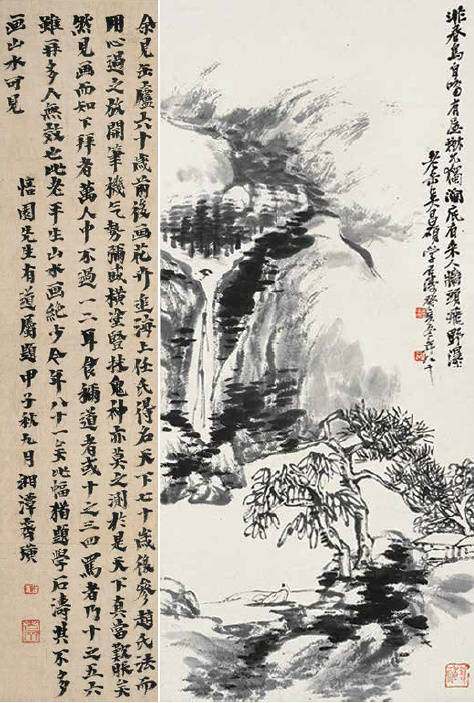 春鳥自啼有屋樹不獨澗底有來人嶺頭飛野瀑
老缶吳昌碩學石濤癸亥年八十
余見缶廬六十歲前後画花卉追海上任氏得名天下七十歲後參趙氏法而
用心過之放開筆機氣勢彌盛橫塗竪抹鬼神亦莫之測於是天下真當歎服矣
然見画而知下拜者萬人中不過一二耳食稱道者或十之三四罵者乃十之五六
雖多人無也此老平生山水画絕少今年八十一矣此幅猶題學石濤其不多
画山水可見
園先生有道屬題甲子秋九月湘潭齊璜